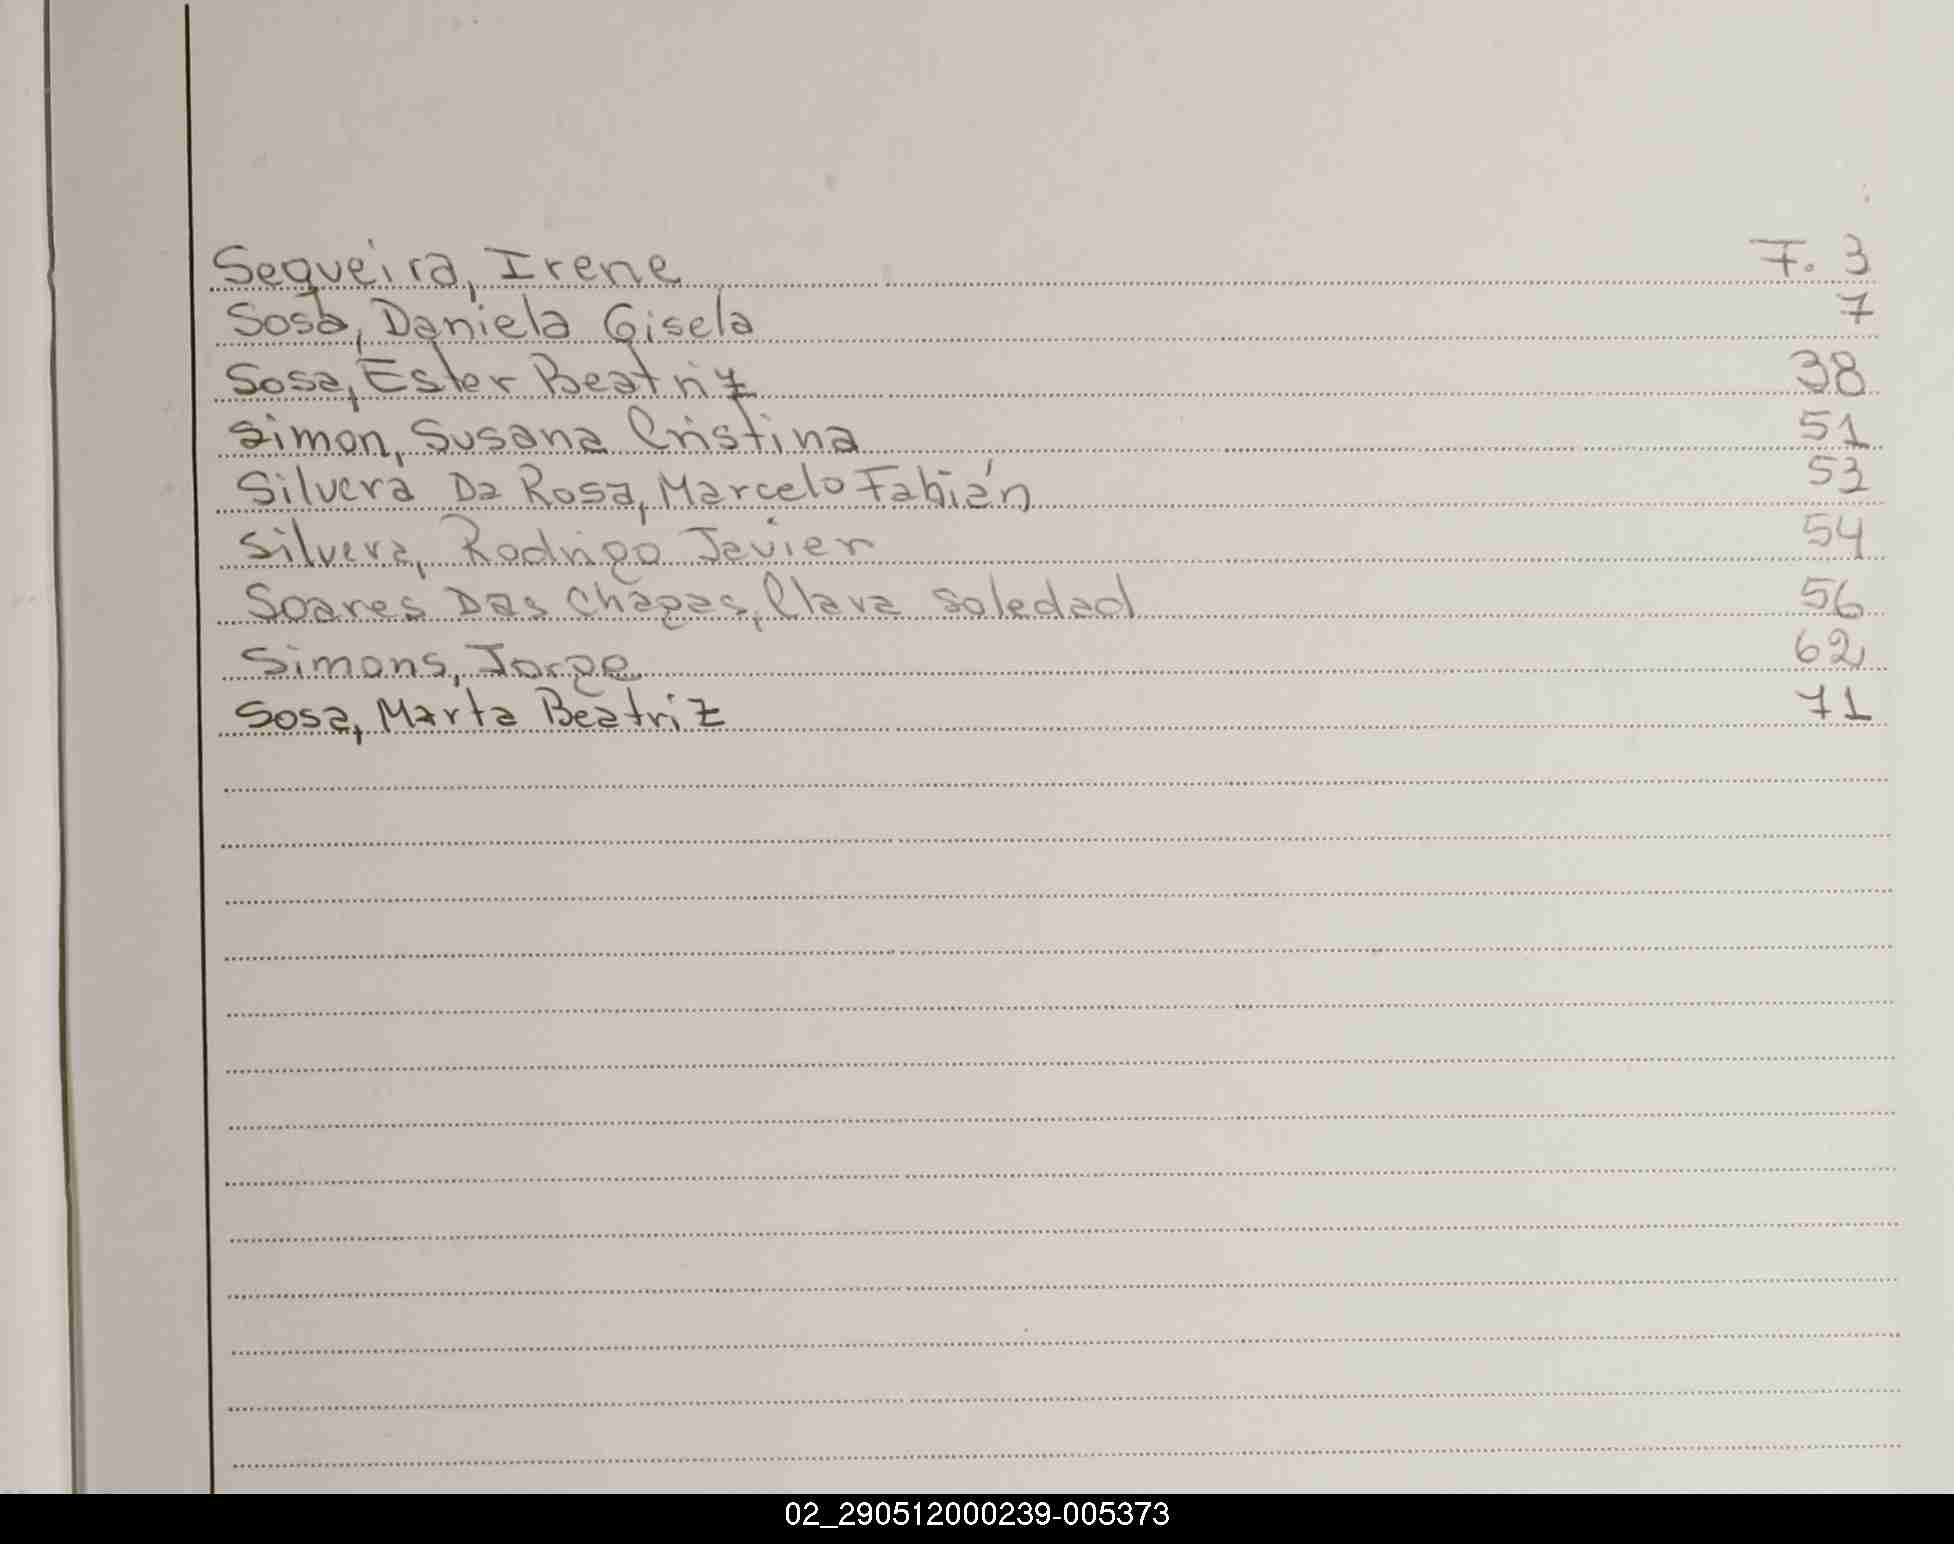 Sequeira, Irene F. 3
Sosa, Daniela Gisela 7
Sosa, Ester Beatriz 38
Simon, Susana Cristina 51
Silvera Da Rosa, Marcelo Fabián 53
Silvera, Rodrigo Javier 54
Soares Das Chagas, Clara Soledad 56
Simons, Jorge 62
Sosa, Marta Beatriz 71
02_290512000239-005373